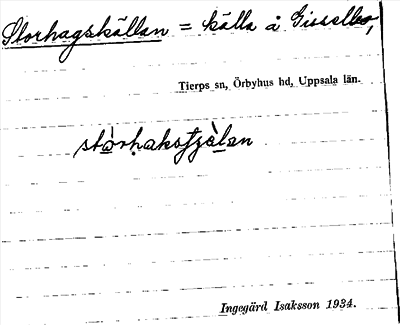 Storhagskällan = källa å Gisselbo,
Tierps sn, Örbyhus hd, Uppsala län.
Ingegärd Isaksson 1934.